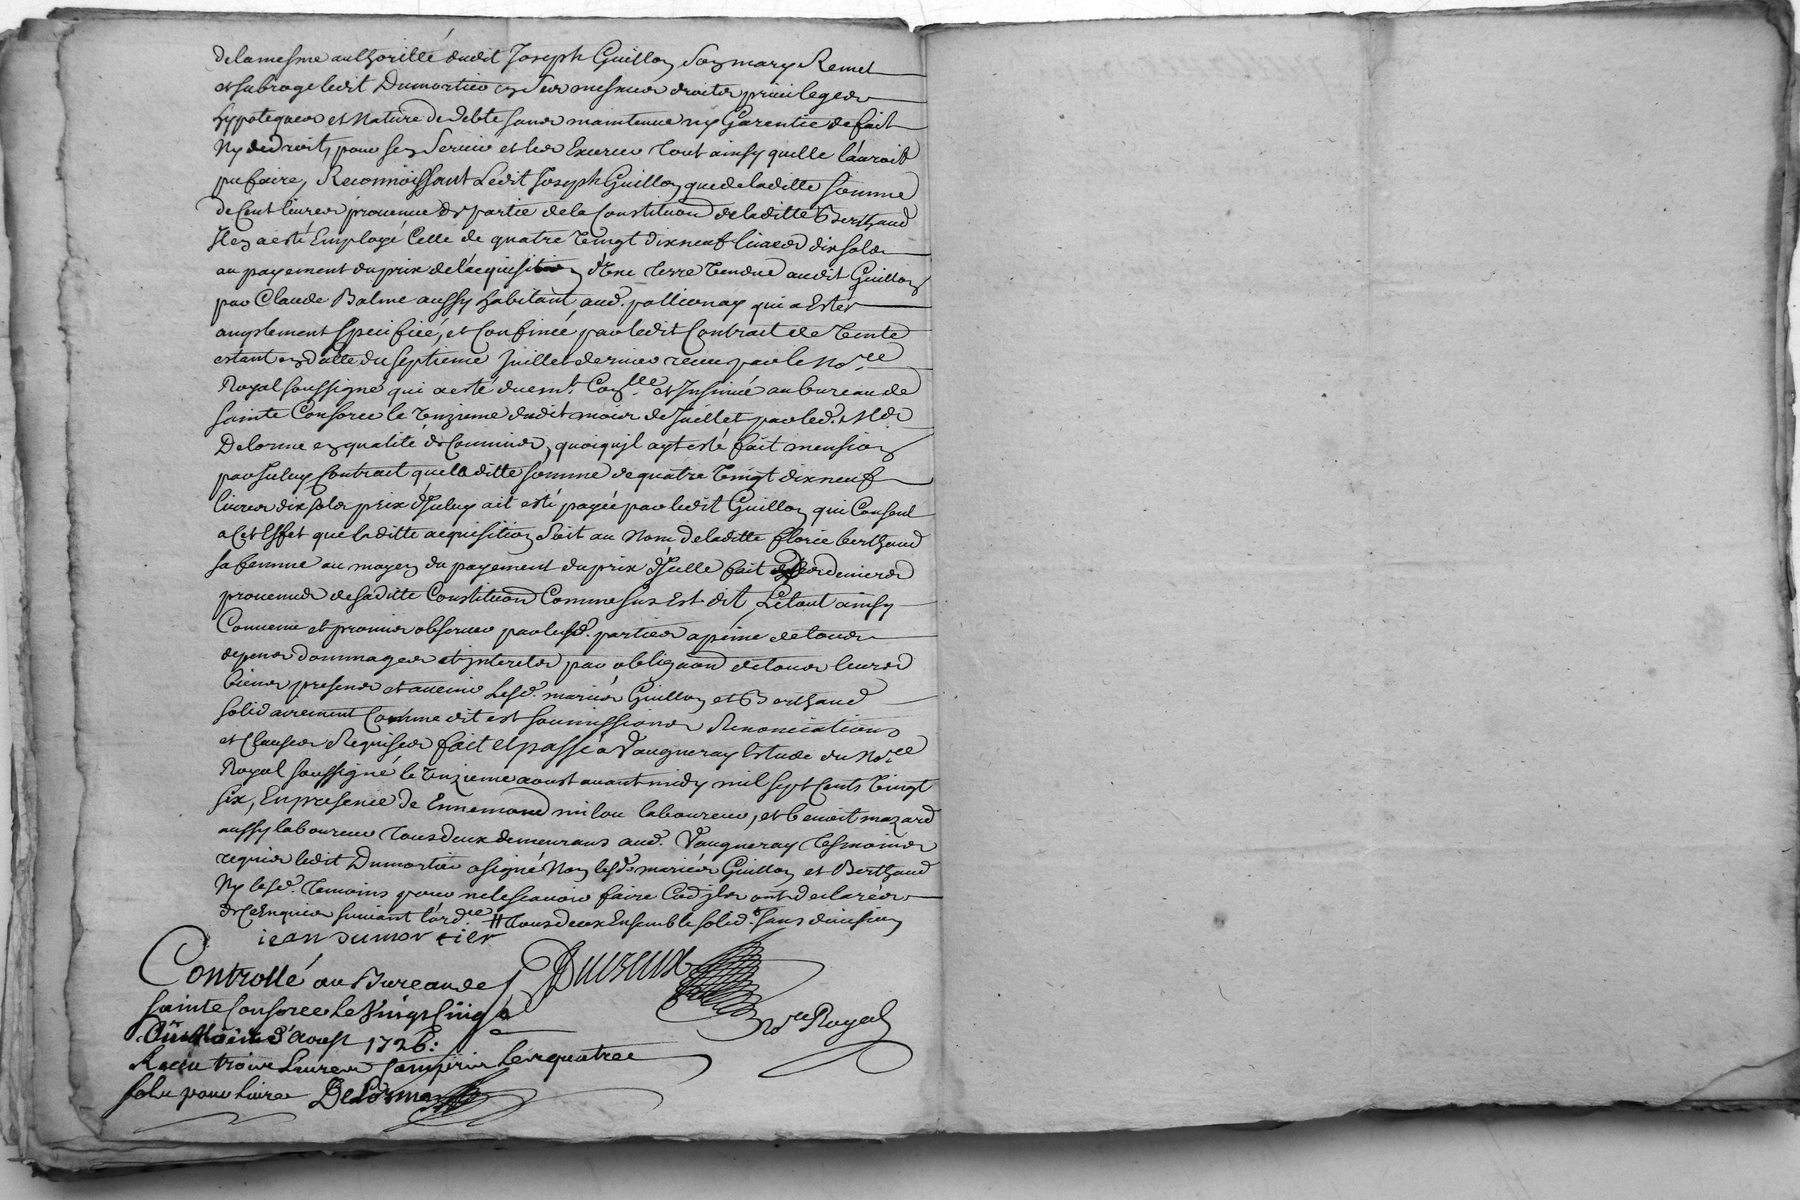 de la mesme authoritté dudit Joseph Guillon son mary Remet
et subroge ledit Dumortier en ses mesmes droits privileges
hypoteques et Nature de debte sans maintenue ny Garentie de fait
Ny de droit, pour s'en servir et les Exercer tout ainsy quelle l'auroit
pu faire, Reconnoissant Ledit Joseph Guillon que de laditte somme
de Cent livres provenue de partie de la Constituon de laditte Berthaud
Il en a esté Employé Celle de quatre vingt dix neuf livres dix sols
au payement du prix de l'acquisition d'une terre vendue audit Guillon
par Claude Balme aussy habitant aud. pollionay qui a Esté
amplement specifiée, et Confinée par ledit Contrait de vente
estant en datte du septieme Juillet dernier receu par le No.re
Royal soussigné qui a esté duem.t Con.llé et Insinué au bureau de
sainte Consorce le unzieme dudit mois de Juillet par led. Mr
Delorme en qualité de Commis, quoiqu'jl ayt esté fait mension
par Iceluy Contrait que laditte somme de quatre vingt dix neuf
livres dix sols prix d'Iceluy ait esté payée par ledit Guillon qui Consent
a Cet Effet que laditte acquisition soit au Nom de laditte florie berthaud
sa femme au moyen du payement du prix d'Icelle fait des deniers
provenus de saditte Constituon Comme sus Est dit Le tout ainsy
Convenu et promis observer par lesd. parties a peine de tous
depens dommages et jnterets par obligaon de tous leurs
biens presens et avenir Lesd. mariés Guillon et Berthaud
solidairement Comme dit est soumissions Renonciations
et Clauses Requises fait et passé a Vaugneray Estude du No.re
Royal soussigné le unzieme aoust avant midy mil sept Cents vingt
six, En presence de Ennemond milou laboureur, et benoit mazard
aussy laboureur tous deux demeurans aud. Vaugneray tesmoins
requis ledit Dumortier a signé Non lesd. mariés Guillon et Berthaud
Ny lesd. temoins pour ne le scavoir faire Cadjls ont declaré
de Ce Enquis suivant l'ord.ce # tous deux Ensemble solid.t sans division
iean dumortier
Controllé au Bureau de
sainte Consorce le vingt Cinq
d'Aoust 1726:
Receu trois Livres
sols pour livre DeLorme
Ducreux
No.re Royal